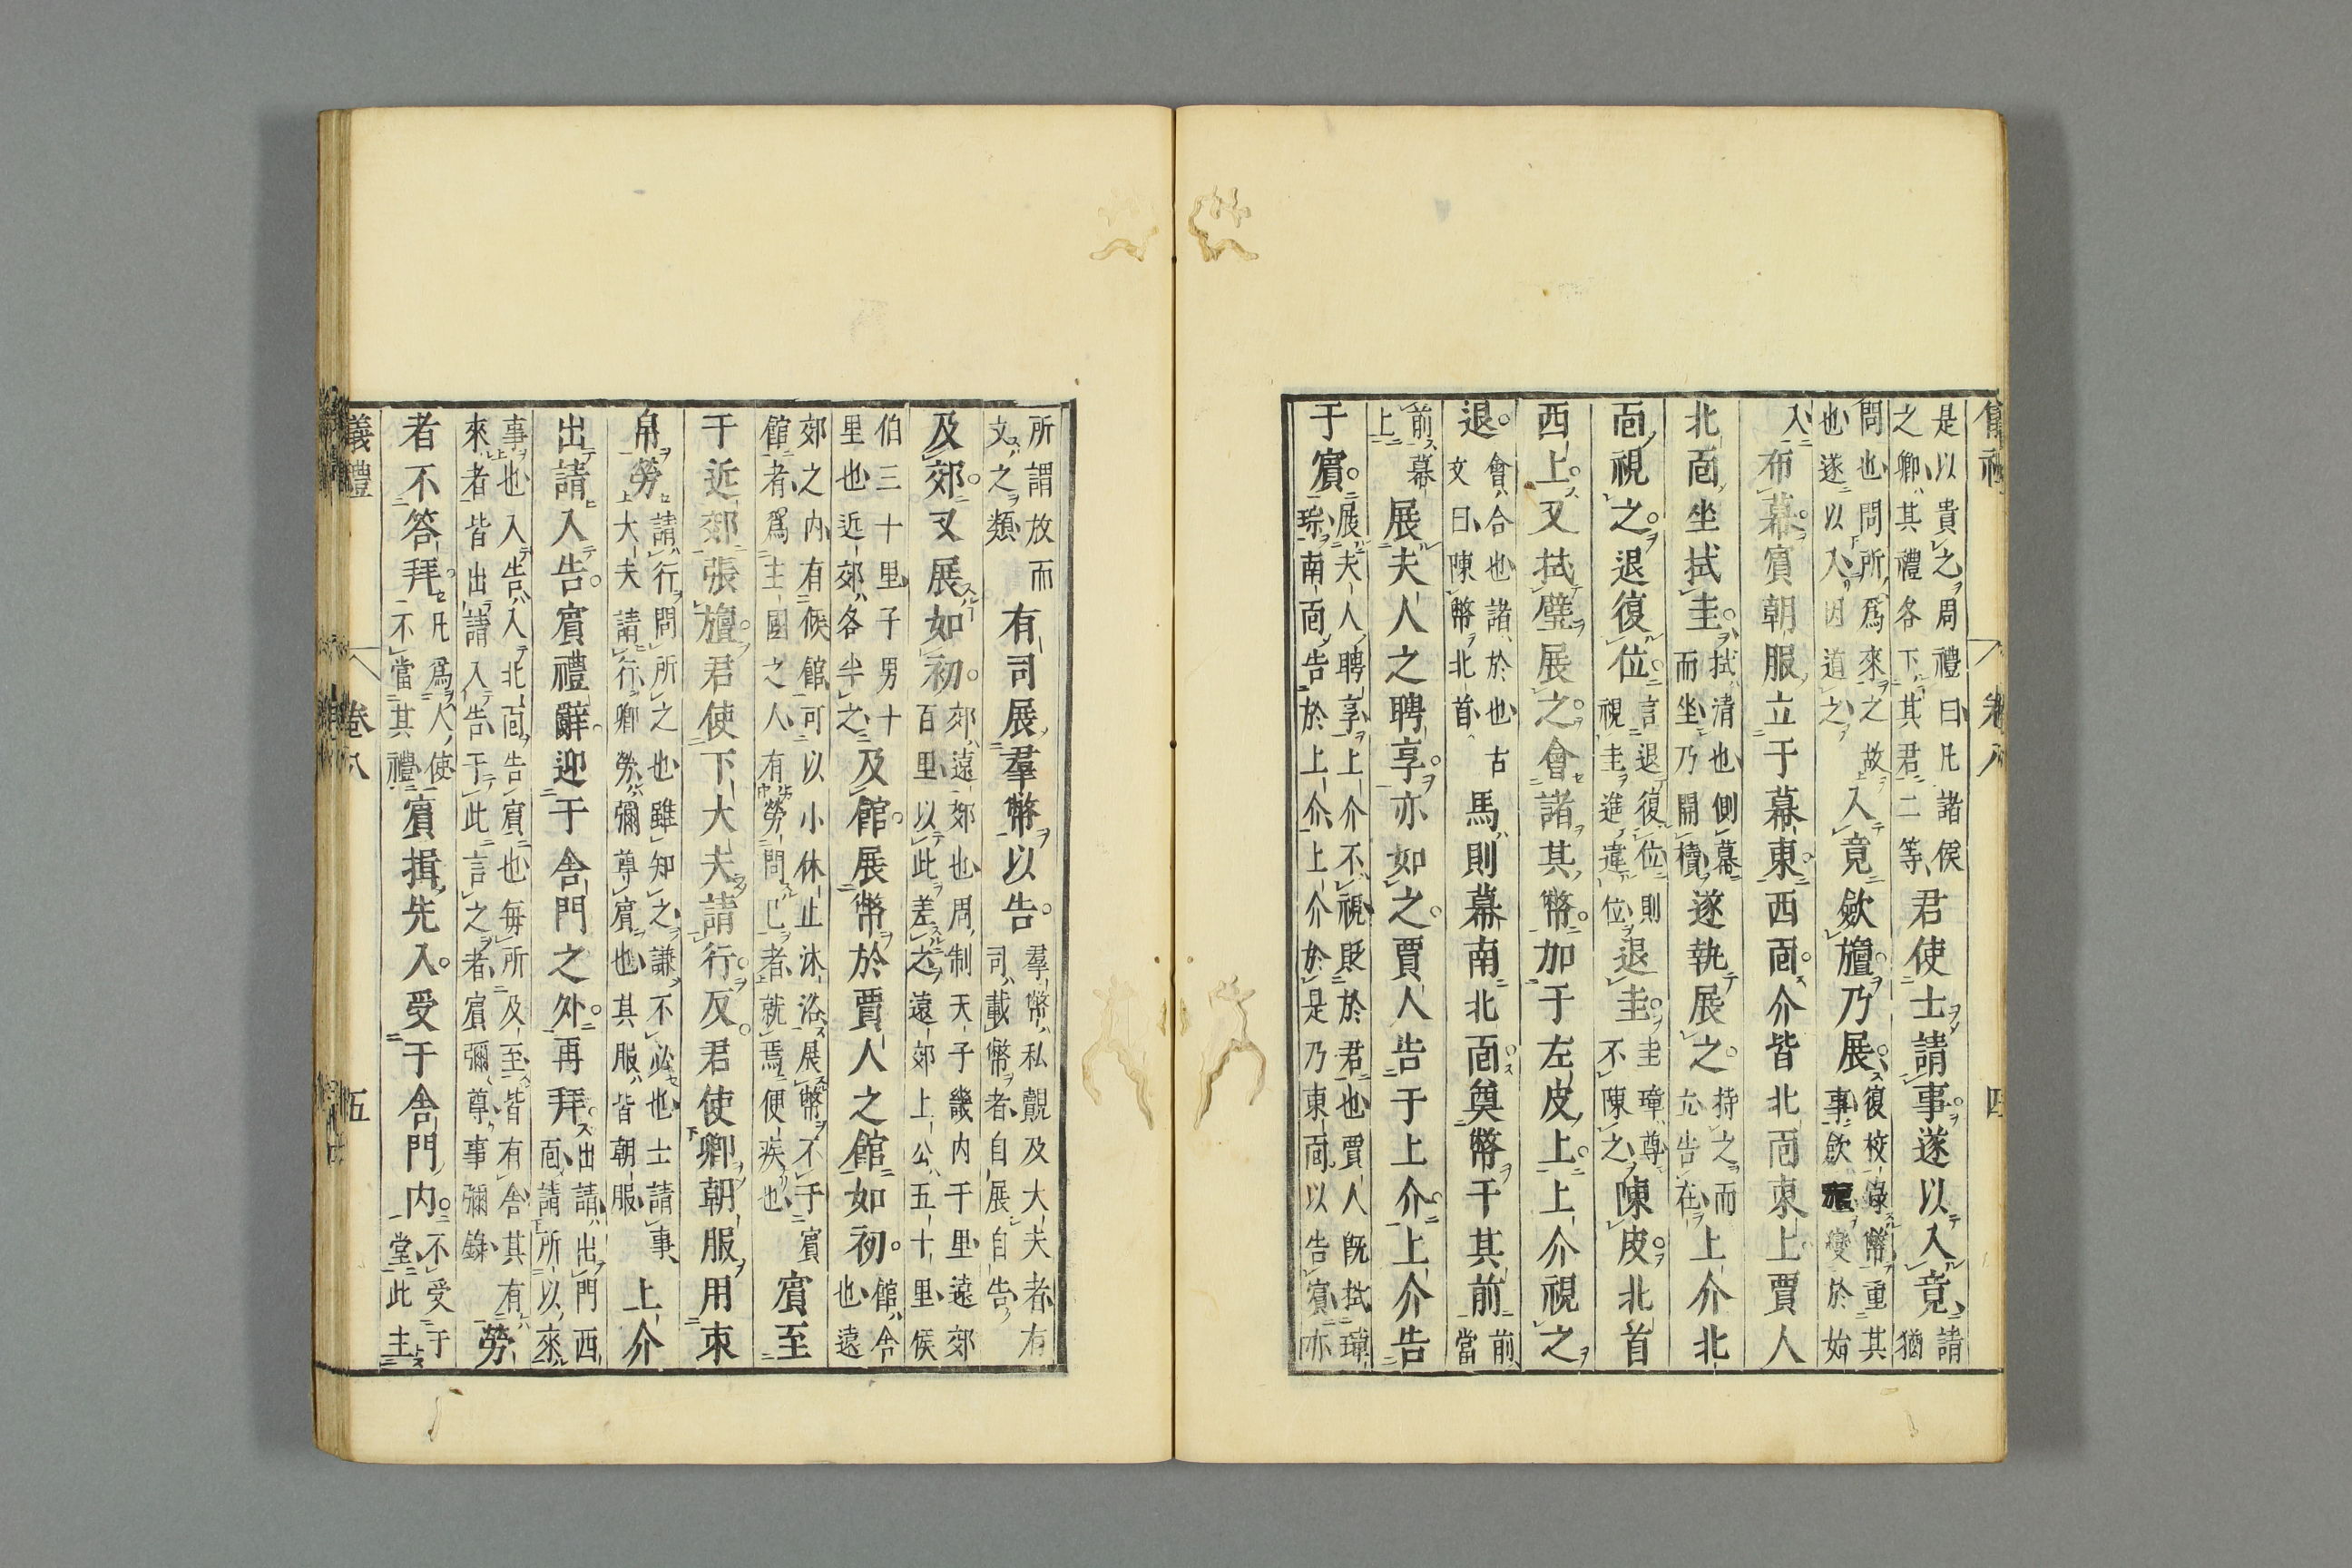 是以貴之周禮曰凡諸侯之卿其禮各下其君二等君使士請事遂以入竟請猶
問也問所爲來之故也遂以入因道之入竟斂旜乃展復校錄幣重其事斂旜變於始
入布幕賓朝服立于幕東西面介皆北面東上賈人
北面坐拭圭拭清也側幕而坐乃開櫝遂執展之持之而立告在上介北
面視之退復位言退復位則視圭進違位退圭圭璋尊不陳之陳皮北首
西上又拭璧展之會諸其幣加于左皮上上介視之
退會合也諸於也古文曰陳幣北首馬則幕南北面奠幣于其前前當
前幕上展夫人之聘享亦如之賈人告于上介上介告
于賓展夫人聘享上介不視貶於君也賈人既拭璋琮南面告於上介上介於是乃東面以告賓亦
所謂放而文之類有司展羣幣以告羣幣私覿及大夫者有司載幣者自展自告
及郊又展如初郊遠郊也周制天子畿内千里遠郊百里以此差之遠郊上公五十里侯
伯三十里子男十里也近郊各半之及館展幣於賈人之館如初館舍也遠
郊之内有候館可以小休止沐浴展幣不于賓館者爲主國之人有勞問己者就焉便疾也賓至
于近郊張旜君使下大夫請行反君使卿朝服用束
帛勞請行問所之也雖知之謙不必也士請事大夫請行卿勞彌尊賓也其服皆朝服上介
出請入告賓禮辭迎于舍門之外再拜出請出門西面請所以來
事也入告入北面告賓也每所及至皆有舍其有來者皆出請入告于此言之者賓彌尊事彌錄勞
者不答拜凡爲人使不當其禮賓揖先入受于舍門内不受于堂此主
義禮 卷八 五